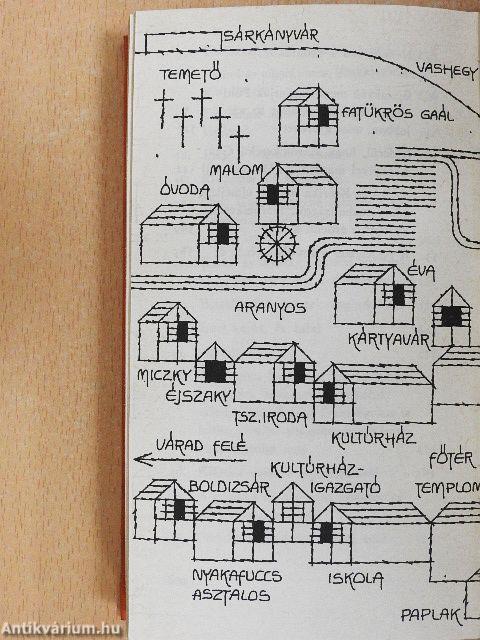 SÁRKÁNYVÁR
TEMETŐ
VASHEGY
FATÜKRÖS GAÁL
MALOM
ÓVODA
ÉVA
ARANYOS
KÁRTYAVÁR
MICZKY
ÉJSZAKY
TSZ. IRODA
KULTÚRHÁZ
VÁRAD FELÉ
FŐTÉR
KULTÚRHÁZ-
IGAZGATÓ
BOLDIZSÁR
TEMPLOM
NYAKAFUCCS
ASZTALOS
ISKOLA
PAPLAK
Antikvárium.hu